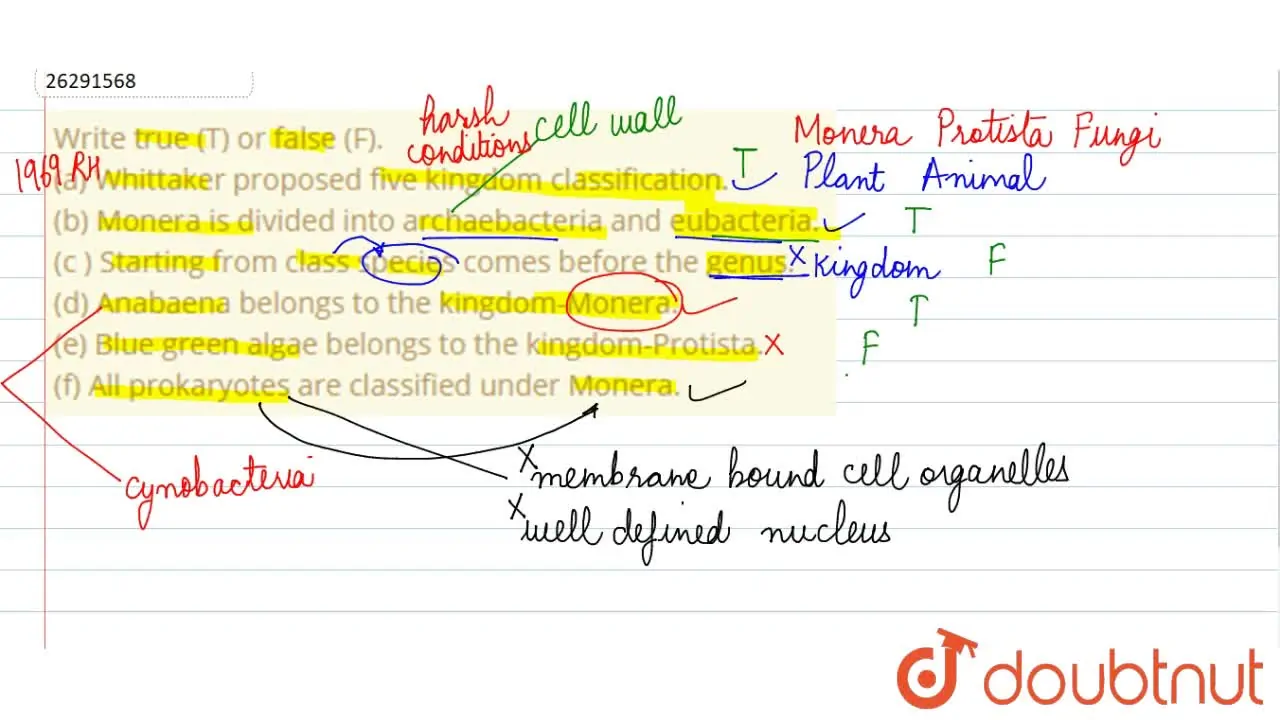 26291568
harsh conditions cell wall
Monera Protista Fungi
Plant Animal
Write true (T) or false (F).
1969 RH
(a) Whittaker proposed five kingdom classification. T
(b) Monera is divided into archaebacteria and eubacteria. T
(c ) Starting from class species comes before the genus. x Kingdom F
(d) Anabaena belongs to the kingdom-Monera. T
(e) Blue green algae belongs to the kingdom-Protista. x F
(f) All prokaryotes are classified under Monera.
cynobacteria
x membrane bound cell organelles
x well defined nucleus
doubtnut